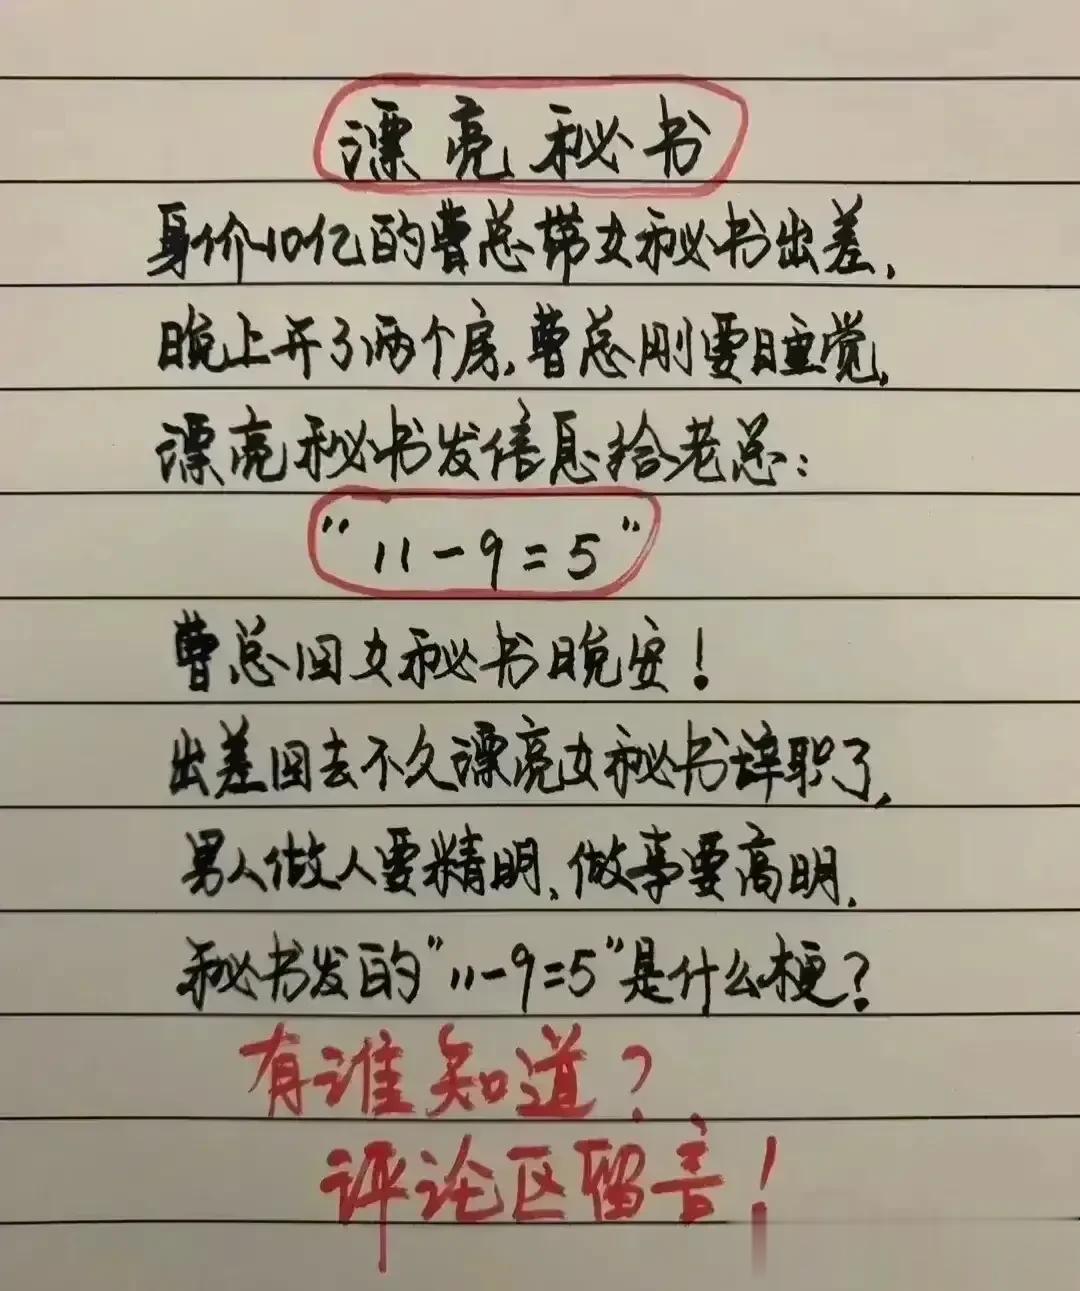 漂亮秘书
身价10亿的曹总带女秘书出差,
晚上开了两个房,曹总刚要睡觉,
漂亮秘书发信息给老总:
"11-9=5"
曹总回女秘书晚安!
出差回去不久漂亮女秘书辞职了,
男人做人要精明,做事要高明.
秘书发的"11-9=5"是什么梗?
有谁知道?
评论区留言!